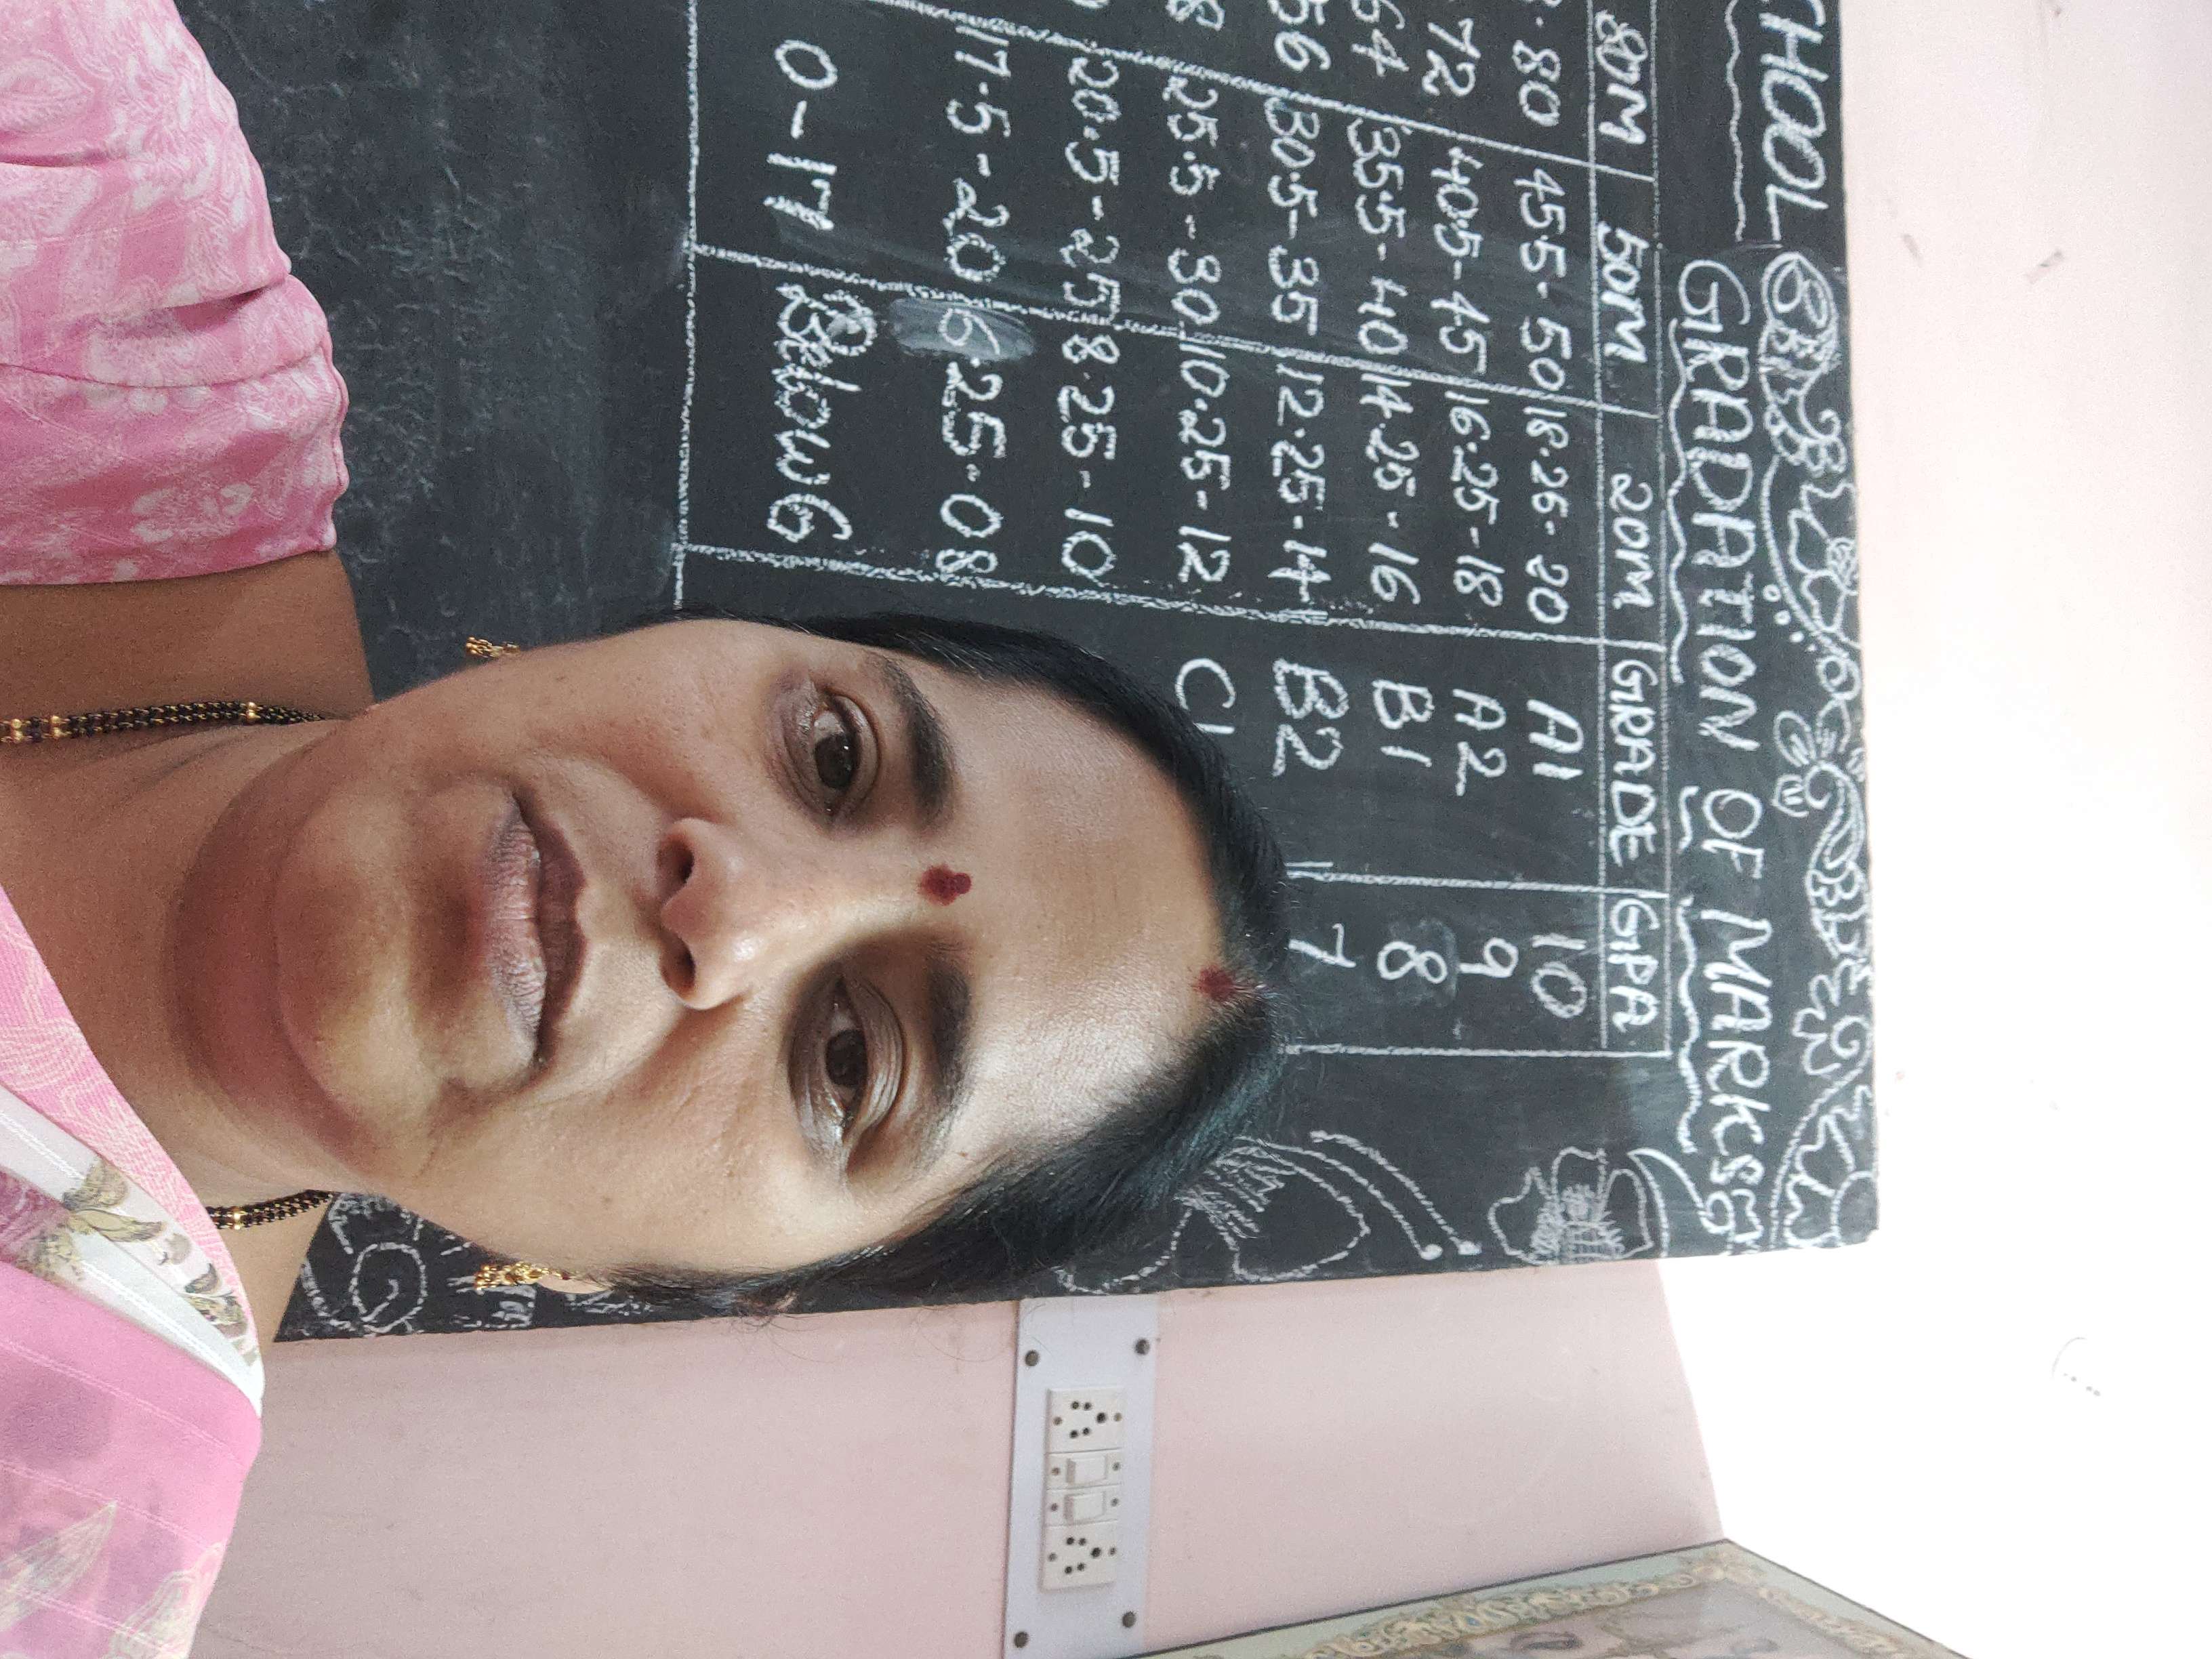 CHOOL
GRADATION OF MARKS
80M 50M 20M GRADE GPA
80 45.5-50 18.25-20 A1 10
72 40.5-45 16.25-18 A2 9
64 35.5-40 14.25-16 B1 8
56 30.5-35 12.25-14 B2 7
8 25.5-30 10.25-12 C1
20.5-25 8.25-10
17.5-20 6.25-08
0-17 Below 6